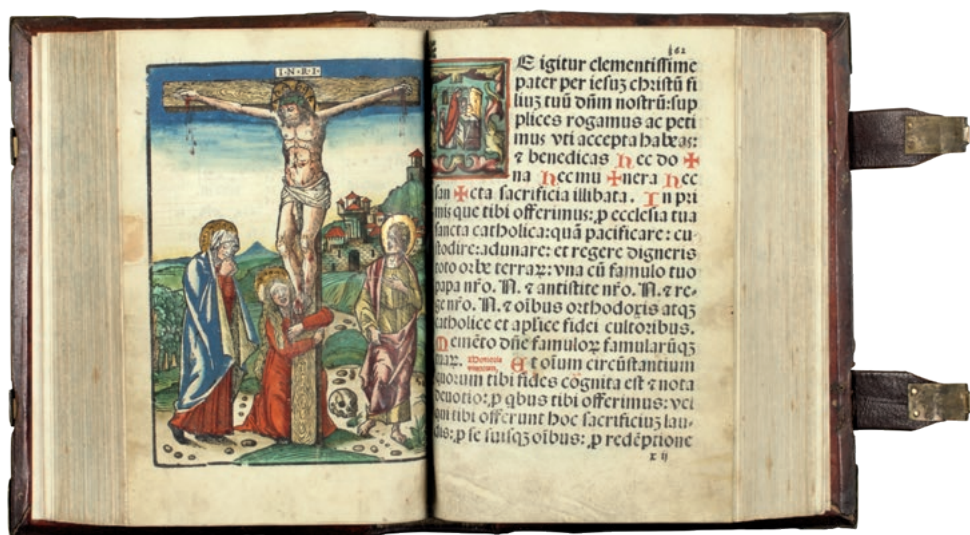 I·N·R·I·
162
E igitur clementissime
pater per iesuz christū fi
liuz tuū dn̄m nostrū: sup
plices rogamus ac peti
mus vti accepta habeas:
⁊ benedicas hec do ✠
na hec mu ✠ nera hec
san ✠ cta sacrificia illibata. In pri
mis que tibi offerimus: ꝓ ecclesia tua
sancta catholica: quā pacificare: cu-
stodire: adunare: et regere digneris
toto orbe terraꝝ: vna cū famulo tuo
papa nr̄o. N. ⁊ antistite nr̄o. N. ⁊ re-
ge nr̄o. N. ⁊ oībus orthodoxis atqꝫ
catholice et apl̄ice fidei cultoribus.
Memēto dn̄e famuloꝝ famularūqꝫ
tuaꝝ. Et oīum circūstantium
quorum tibi fides cōgnita est ⁊ nota
deuotio: ꝓ qbus tibi offerimus: vel
qui tibi offerunt hoc sacrificiuz lau-
dis: ꝓ se suisqꝫ oībus: ꝓ redēptione
x ij